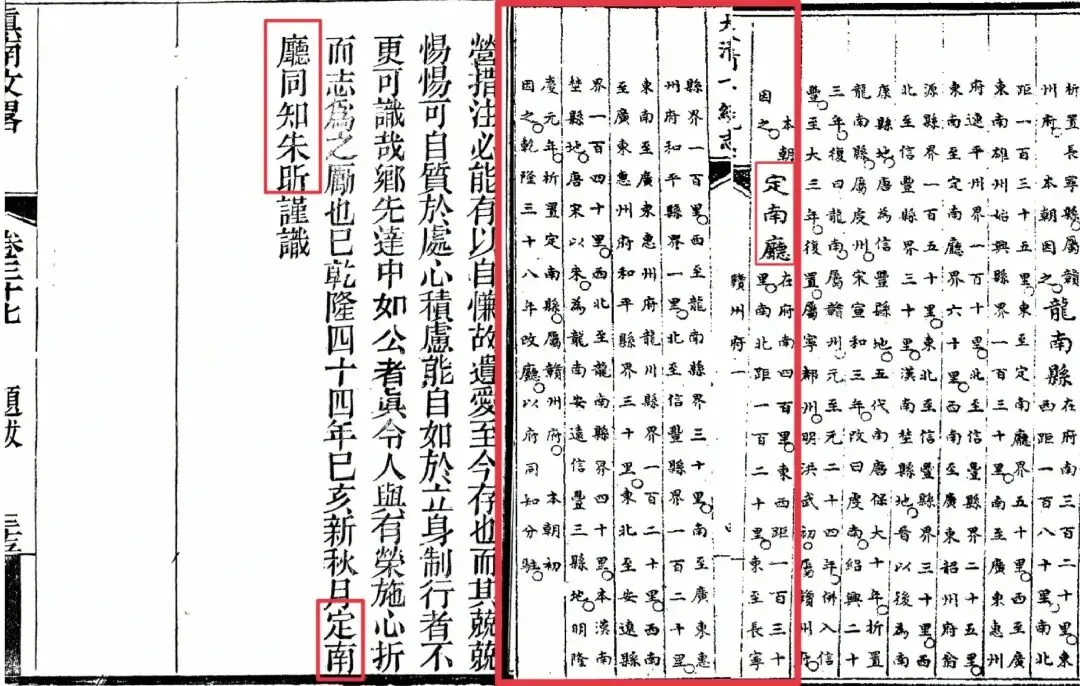 析置長寧縣屬贛
州府。本朝因之。龍南縣在府南三百二十里東
西距一百八十里。南北
距一百三十五里。東至定南廳界五十里。西至廣
東南雄州始興縣界一百三十里。南至廣東惠州
府連平州界一百十里。北至信豐縣界二十五里。
東南至定南廳界六十里。西南至廣東韶州府翁
源縣界一百五十里。東北至信豐縣界三十里。西
北至信豐縣界三十里。漢南埜縣地。晉以後為南
康縣地。唐為信豐縣地。五代南唐保大十年。析置
龍南縣。屬虔州。宋宣和三年。改曰虔南。紹興二十
三年。復曰龍南。屬贛州。元至元二十四年。併入信
豐。至大三年。復置。屬寧都州。明洪武初。屬贛州府。
本朝
因之。定南廳在府南四百里。東西距一百三十
里。南北距一百二十里。東至長寧
贛州府一
大清一統志
縣界一百里。西至龍南縣界三十里。南至廣東惠
州府和平縣界一里。北至信豐縣界一百二十里。
東南至廣東惠州府龍川縣界一百二十里。西南
至廣東惠州府和平縣界三十里。東北至安遠縣
界一百四十里。西北至龍南縣界四十里。本漢南
埜縣地。唐宋以來。為龍南安遠信豐三縣地。明隆
慶元年。析置定南縣。屬贛州府。本朝初
因之。乾隆三十八年改廳。以府同知分駐。
營措注必能有以自慊故遺愛至今存也而其兢兢
惕惕可自質於處心積慮能自如於立身制行者不
更可識哉鄉先達中如公者眞令人與有榮施心折
而志爲之勵也已乾隆四十四年巳亥新秋月定南
廳同知朱昕謹識
滇南文畧
卷三十七
題跋